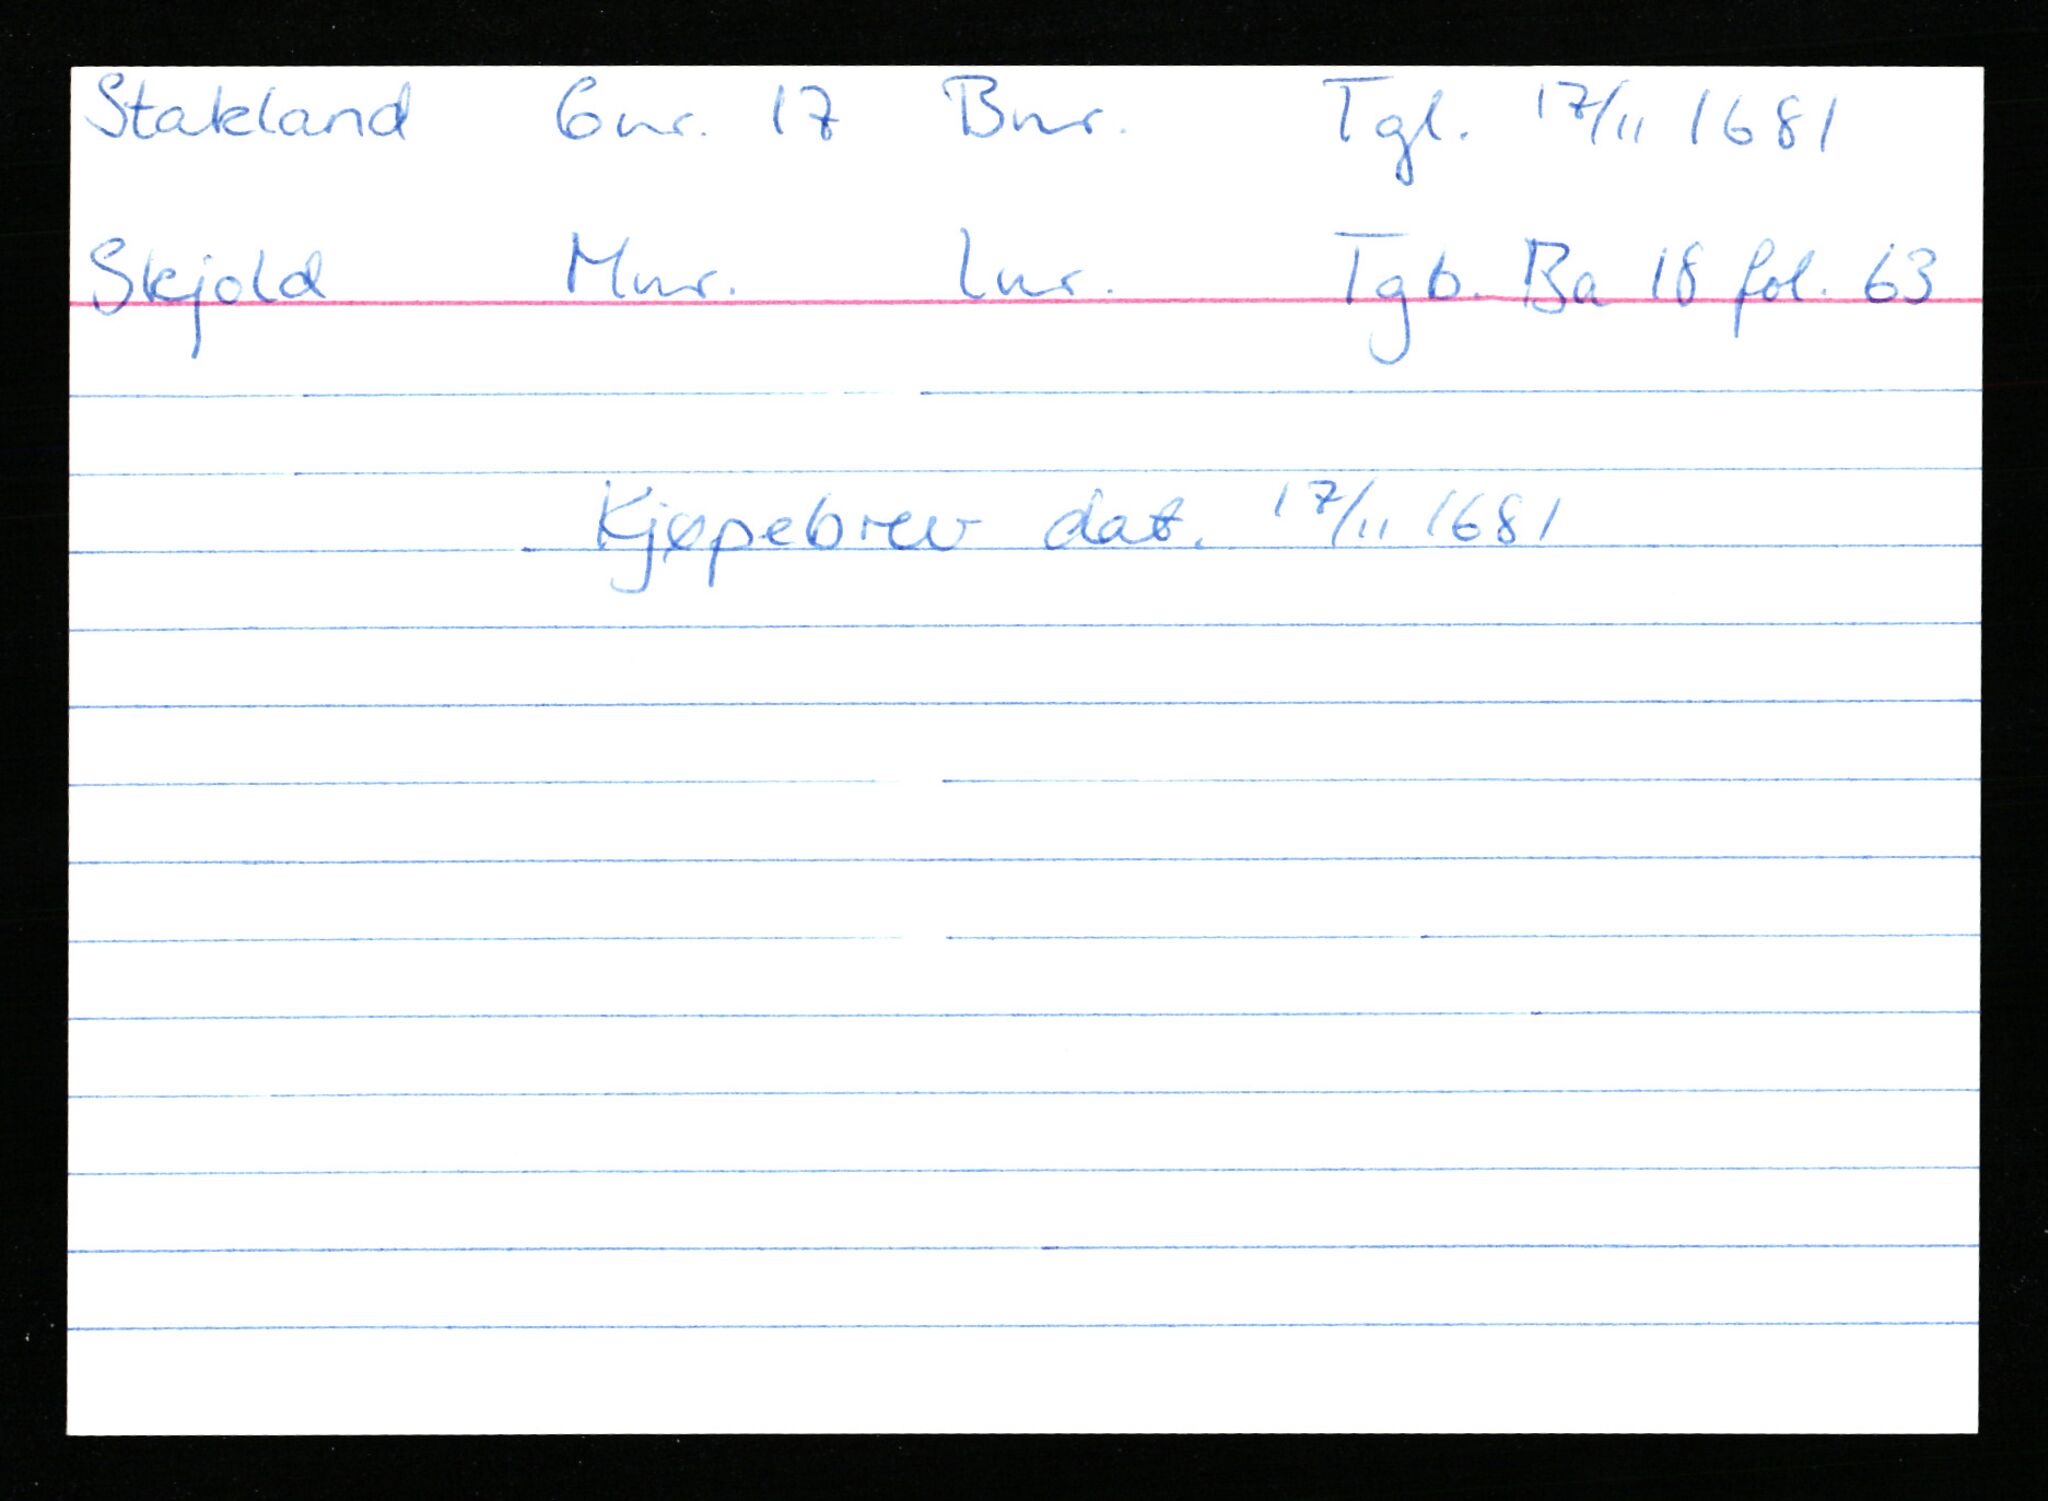 Stakland Gnr. 17 Bnr. Tgl. 17/11 1681
Skjold Mnr. Lnr. Tgb. Ba 18 fol. 63
Kjøpebrev dat. 17/11 1681